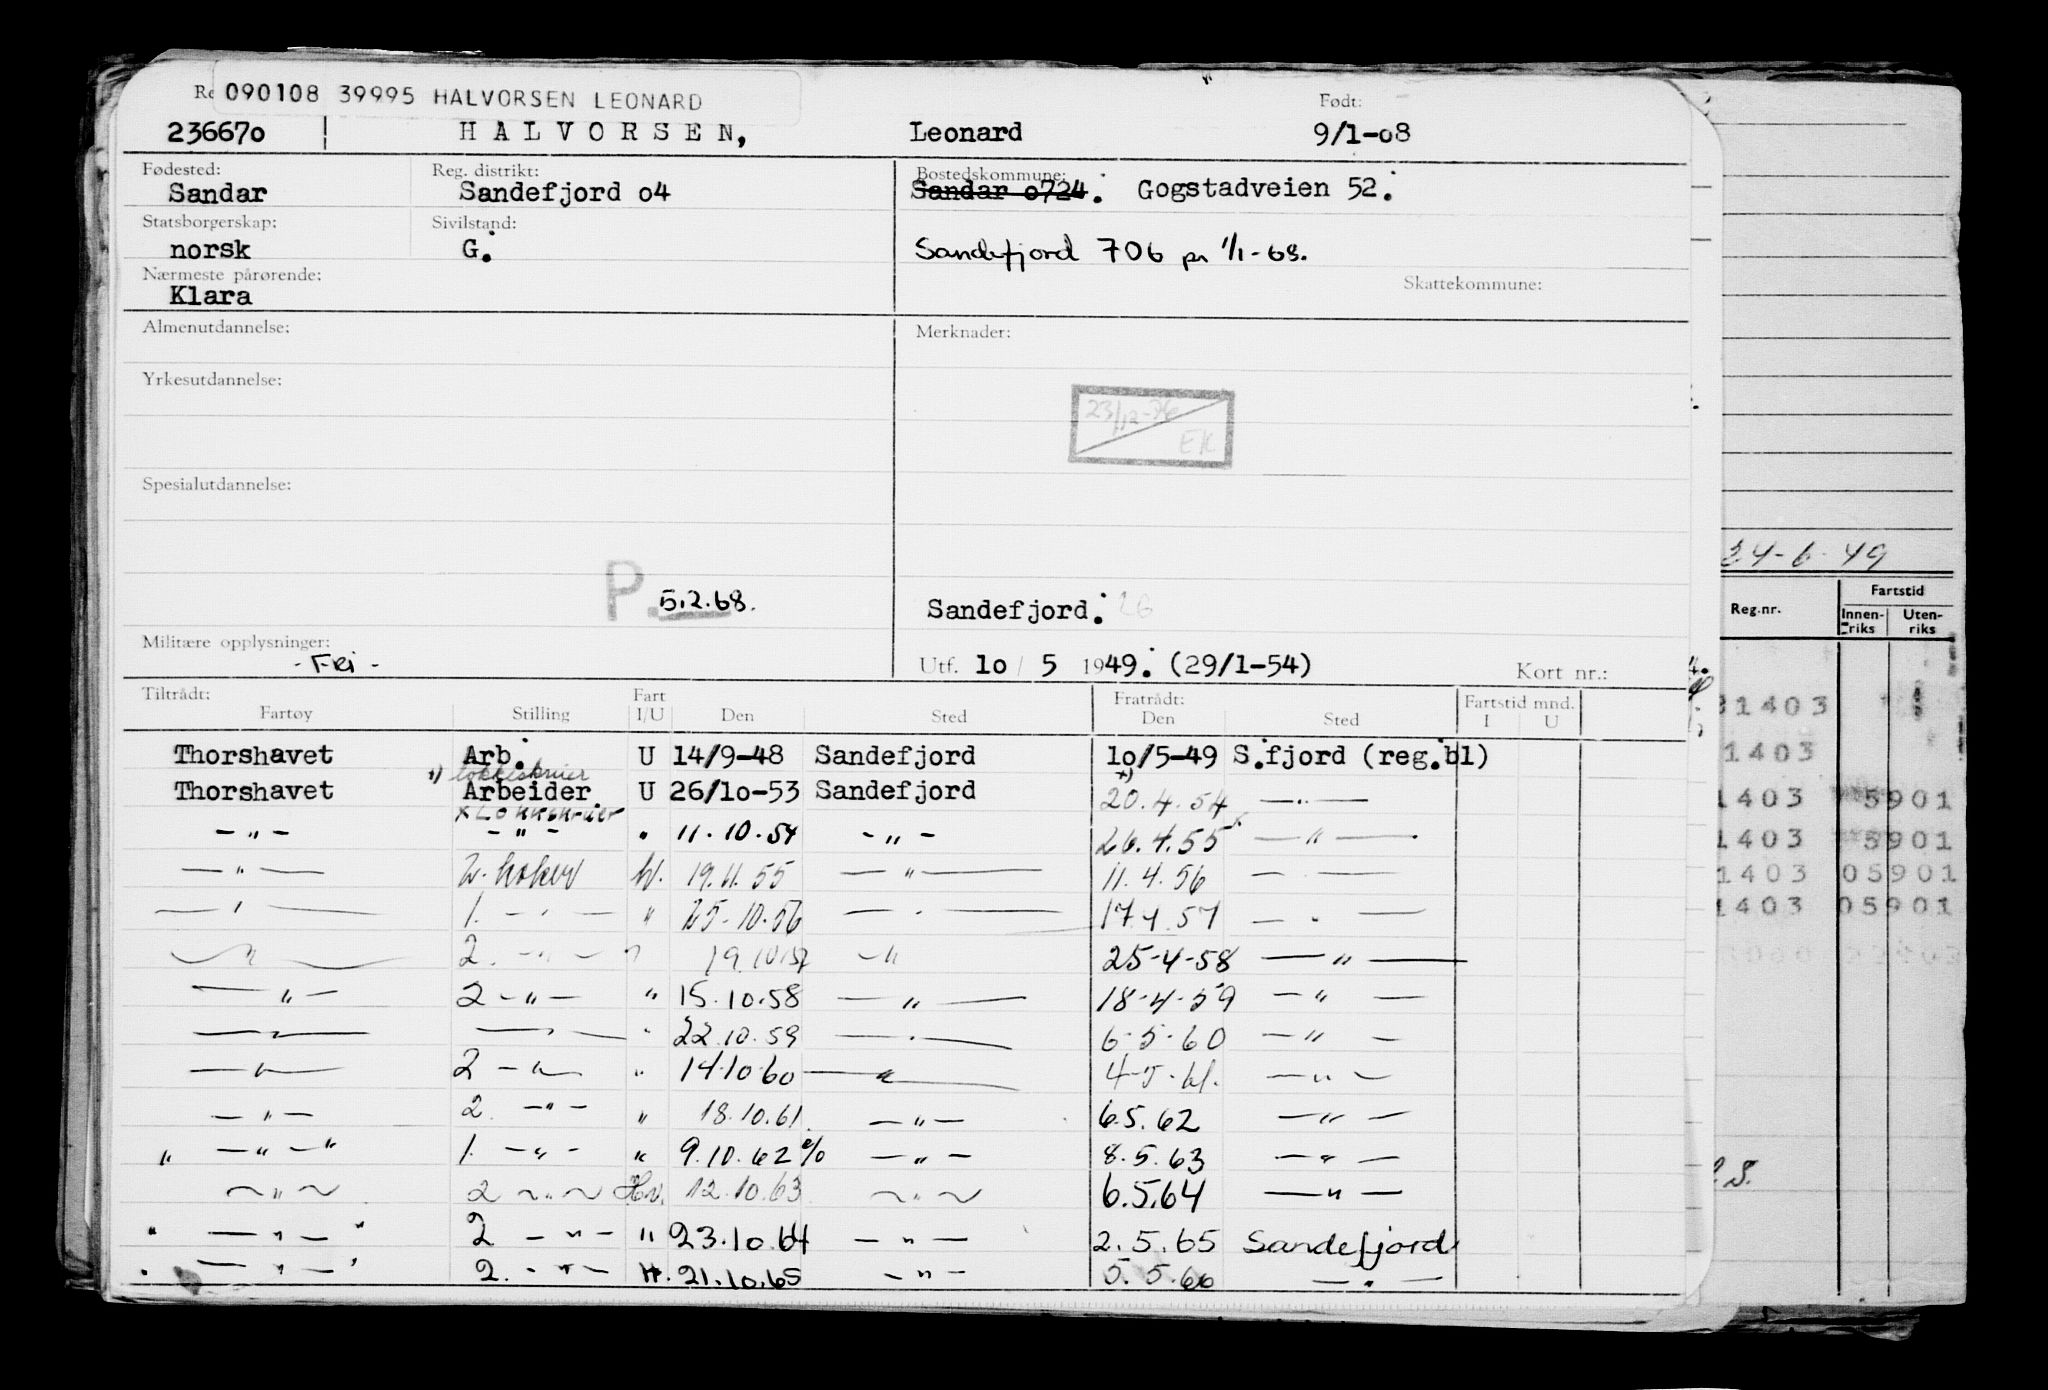 Re 090108 39995 HALVORSEN LEONARD Født:
236670 HALVORSEN, Leonard 9/1-08
Fødested: Reg. distrikt: Bostedskommune:
Sandar Sandefjord o4 Sandar o724. Gogstadveien 52.
Statsborgerskap: Sivilstand:
norsk G. Sandefjord 706 pr 1/1-68.
Nærmeste pårørende: Skattekommune:
Klara
Almenutdannelse: Merknader:
Yrkesutdannelse:
23/12-76
EK
Spesialutdannelse:
24-6-49
P. 5.2.68. Sandefjord. 26
Militære opplysninger:
- FRI -
Utf. 10 / 5 1949. (29/1-54) Kort nr.:
Tiltrådt: Fart Fratrådt: Fartstid mnd.
Fartøy Stilling I/U Den Sted Den Sted I U
Thorshavet Arb. U 14/9-48 Sandefjord 10/5-49 S.fjord (reg.bl)
Thorshavet Arbeider U 26/10-53 Sandefjord 20.4.54 — " —
x Lokkskrier
— " — — " — " 11.10.54 — " — 26.4.55 x — " —
— " — 2. koker h. 19.11.55 — " — 11.4.56 — " —
— " — 1. — " — " 25.10.56 — " — 17.4.57 — " —
— " — 2. — " — " 19.10.57 — " 25-4-58 — " —
— " — 2 — " — " 15.10.58 — " — 18-4-59 — " —
— " — — " — " 22.10.59 — " — 6-5-60 — " —
— " — 2 — " — " 14.10.60 — " — 4-5-61. — " —
— " — 2. — " — " 18.10.61. — " — 6.5.62 — " —
" — " — " 1. — " — " 9.10.62 — " — 8.5.63 — " —
— " — 2 — " — Hv. 12.10.63 — " — 6.5.64 — " —
" — " — " 2 — " — " 23.10.64 — " — 2.5.65 Sandefjord
" — " — " 2. — " — H. 21.10.65 — " — 5.5.66 — " —
Reg.nr. Fartstid
Innen-riks Uten-riks
31403
1403
1403 5901
1403 5901
1403 05901
1403 05901